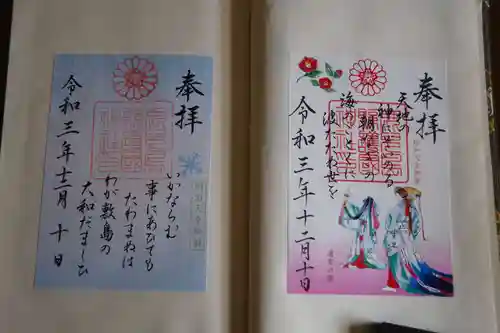 奉拝
天地の
神にぞいのる
朝なぎの
海のごとくに
波たたぬ世を
令和三年十二月十日
奉拝
いかならむ
事にあひても
たわまぬは
わが敷島の
大和だましひ
令和三年十二月十日